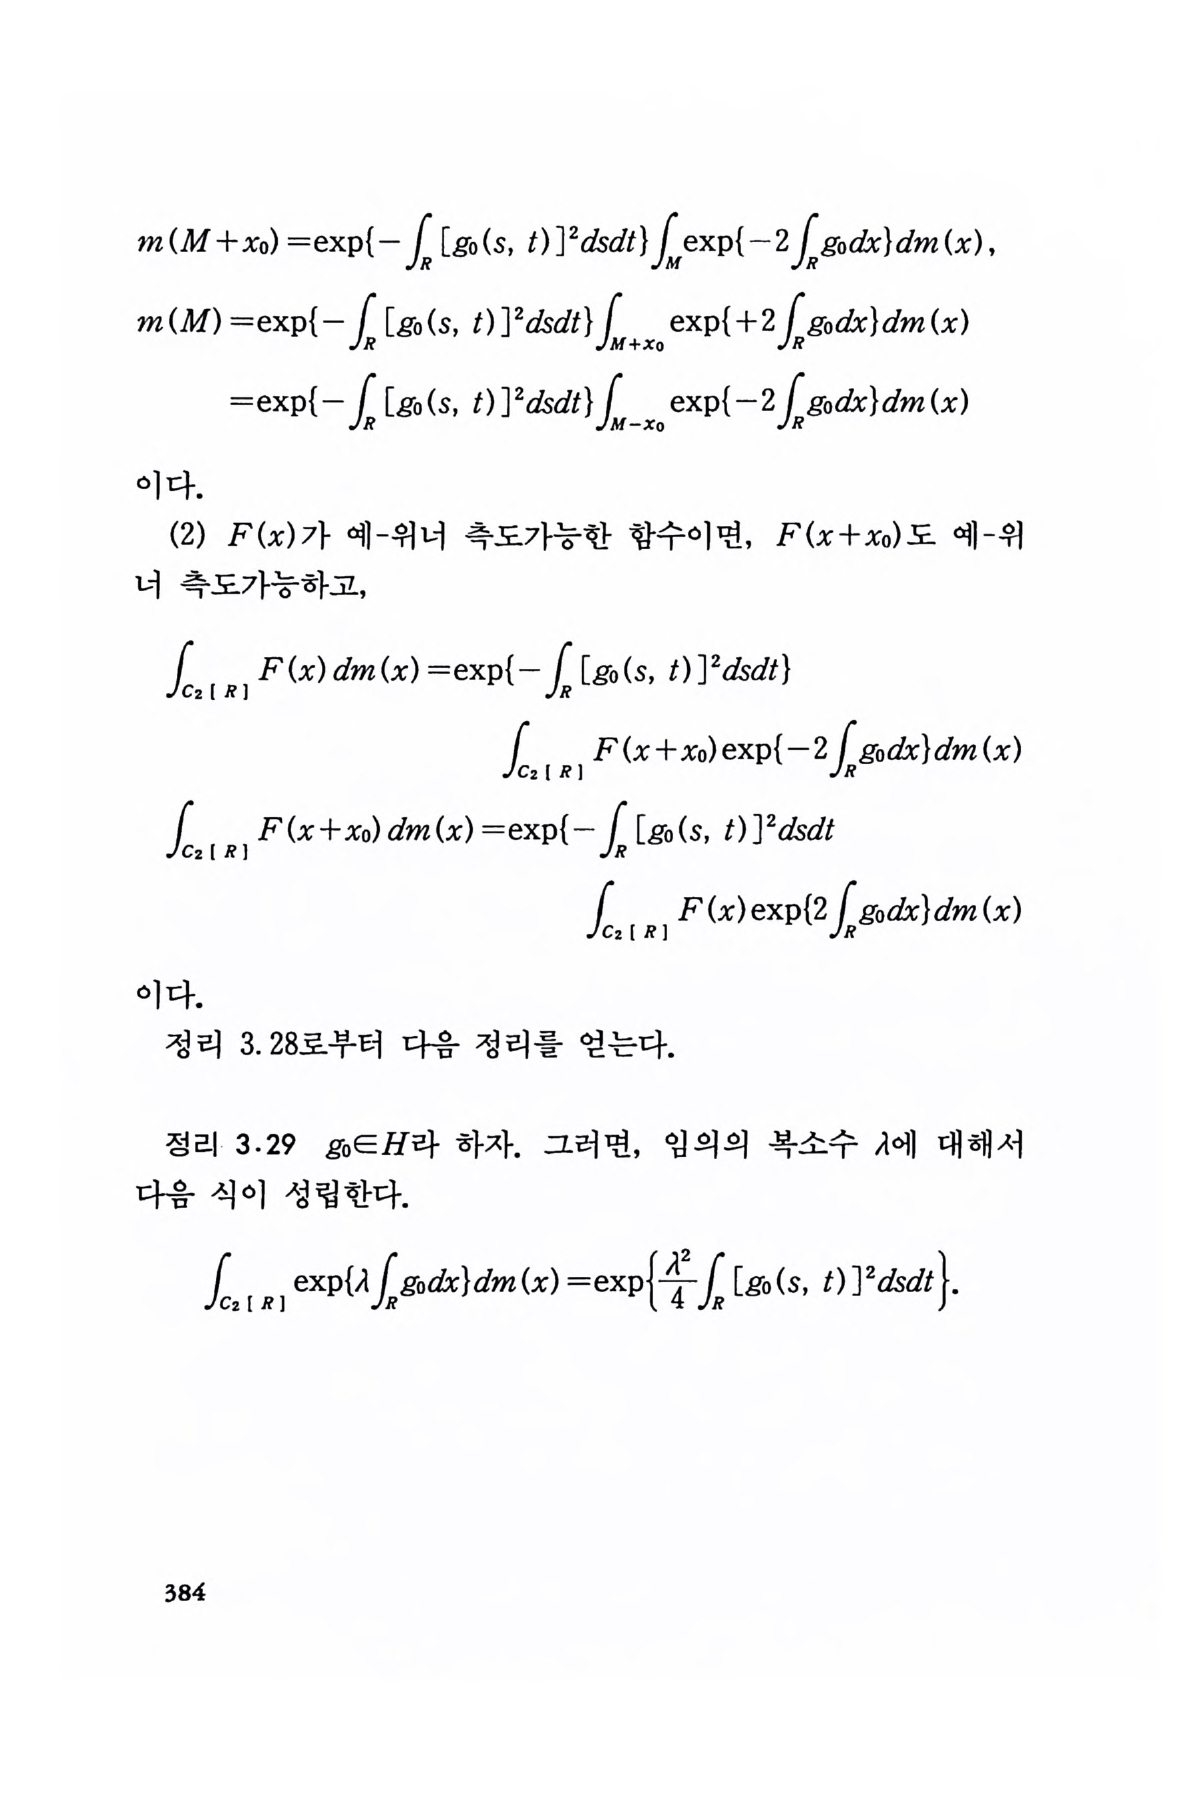 m(M+x₀)=exp{-∫_R [g₀(s, t)]²dsdt}∫_M exp{-2∫_R g₀dx}dm(x),
m(M)=exp{-∫_R [g₀(s, t)]²dsdt}∫_{M+x₀} exp{+2∫_R g₀dx}dm(x)
=exp{-∫_R [g₀(s, t)]²dsdt}∫_{M-x₀} exp{-2∫_R g₀dx}dm(x)
이다.
(2) F(x)가 예-위너 측도가능한 함수이면, F(x+x₀)도 예-위
너 측도가능하고,
∫_{C₂[R]} F(x)dm(x)=exp{-∫_R [g₀(s, t)]²dsdt}
∫_{C₂[R]} F(x+x₀)exp{-2∫_R g₀dx}dm(x)
∫_{C₂[R]} F(x+x₀)dm(x)=exp{-∫_R [g₀(s, t)]²dsdt
∫_{C₂[R]} F(x)exp{2∫_R g₀dx}dm(x)
이다.
정리 3.28로부터 다음 정리를 얻는다.
정리 3.29 g₀∈H라 하자. 그러면, 임의의 복소수 λ에 대해서
다음 식이 성립한다.
∫_{C₂[R]} exp{λ∫_R g₀dx}dm(x)=exp{λ²/4 ∫_R [g₀(s, t)]²dsdt}.
384